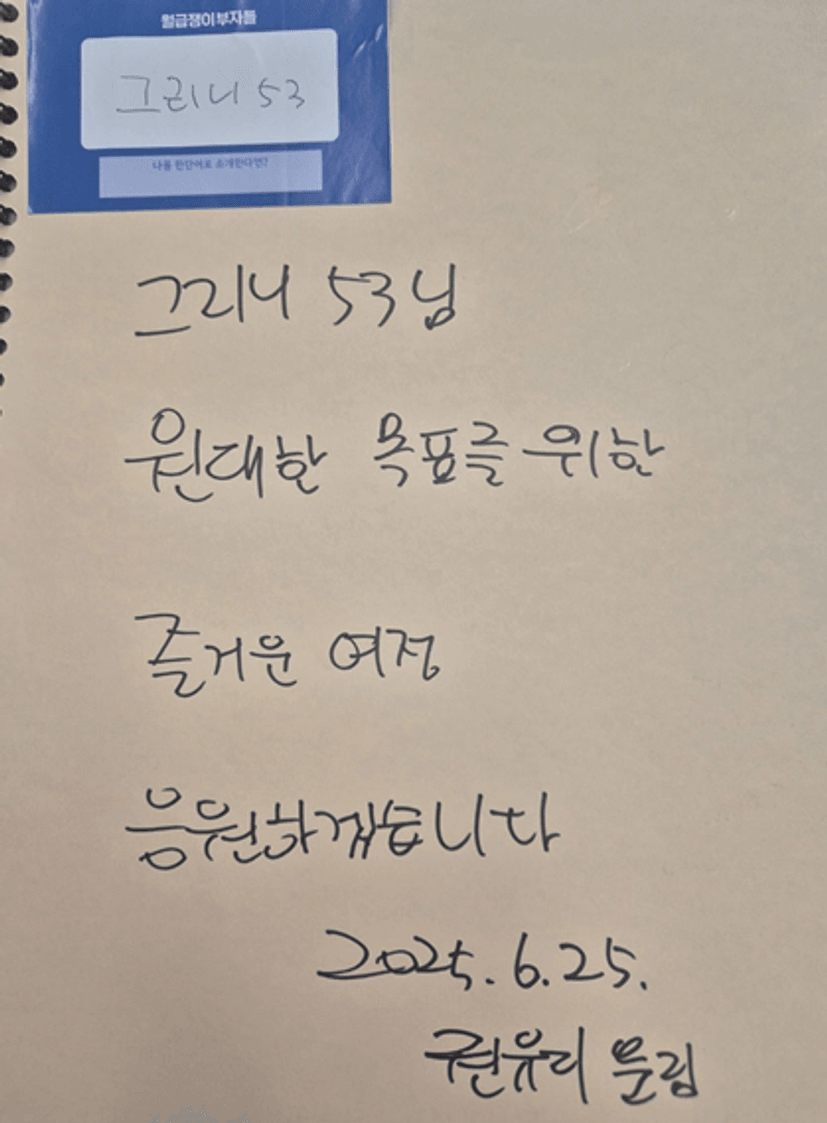 월급쟁이부자들
그리니 53
나를 한단어로 소개한다면?
그리니 53님
원대한 목표를 위한
즐거운 여정
응원하겠습니다
2025. 6. 25.
권유디 올림